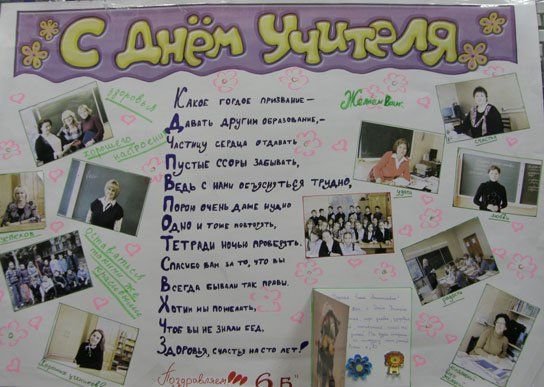 С Днём Учителя
здоровья
хорошего настроения
Желаем Вам:
счастья
Какое гордое призвание –
Давать другим образование, –
Частицу сердца отдавать
Пустые ссоры забывать,
Ведь с нами объясниться трудно,
Порой очень даже нудно
Одно и тоже повторять,
Тетради ночью проверять.
Спасибо вам за то, что вы
Всегда бывали так правы.
Хотим мы пожелать,
Чтоб вы не знали бед,
Здоровья, счастья на сто лет!
удачи
любви
успехов
Оставаться такими же красивыми
радости
Хороших учеников
Поздравляем!!! 6 "Б"